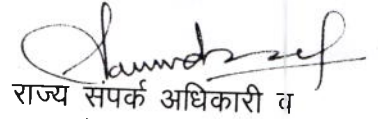 राज्य संपर्क अधिकारी व